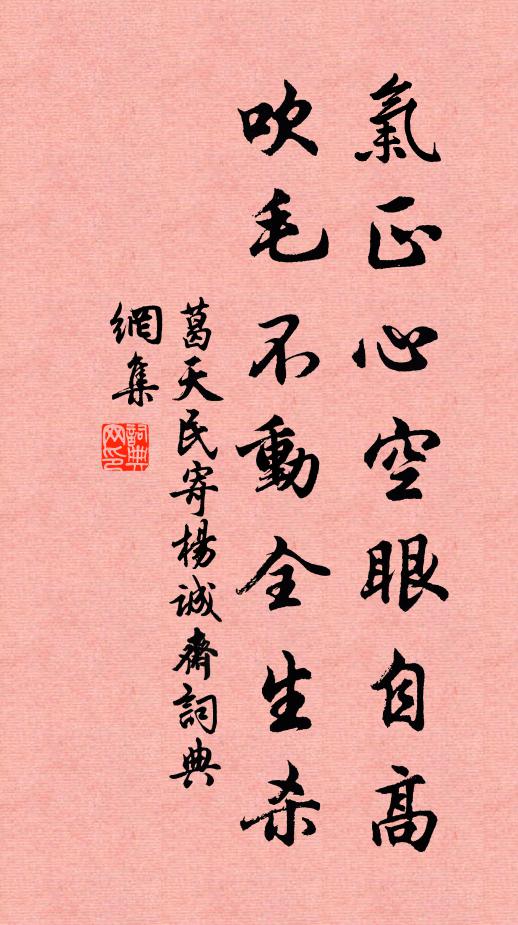 氣正心空眼自高
吹毛不動全生杀
葛天民寄楊誠齋詞典
網集
詞典
网印